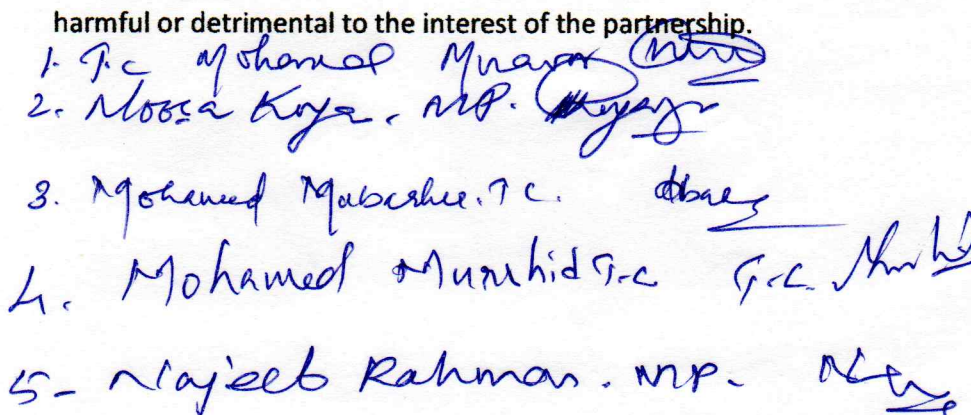 harmful or detrimental to the interest of the partnership.
1. T.c Mohamed
2. Moosa Koya. MP.
3. Mohamed Mubashee. T C.
4. Mohamed Murshid T.c T.C.
5- Najeeb Rahman. MP.